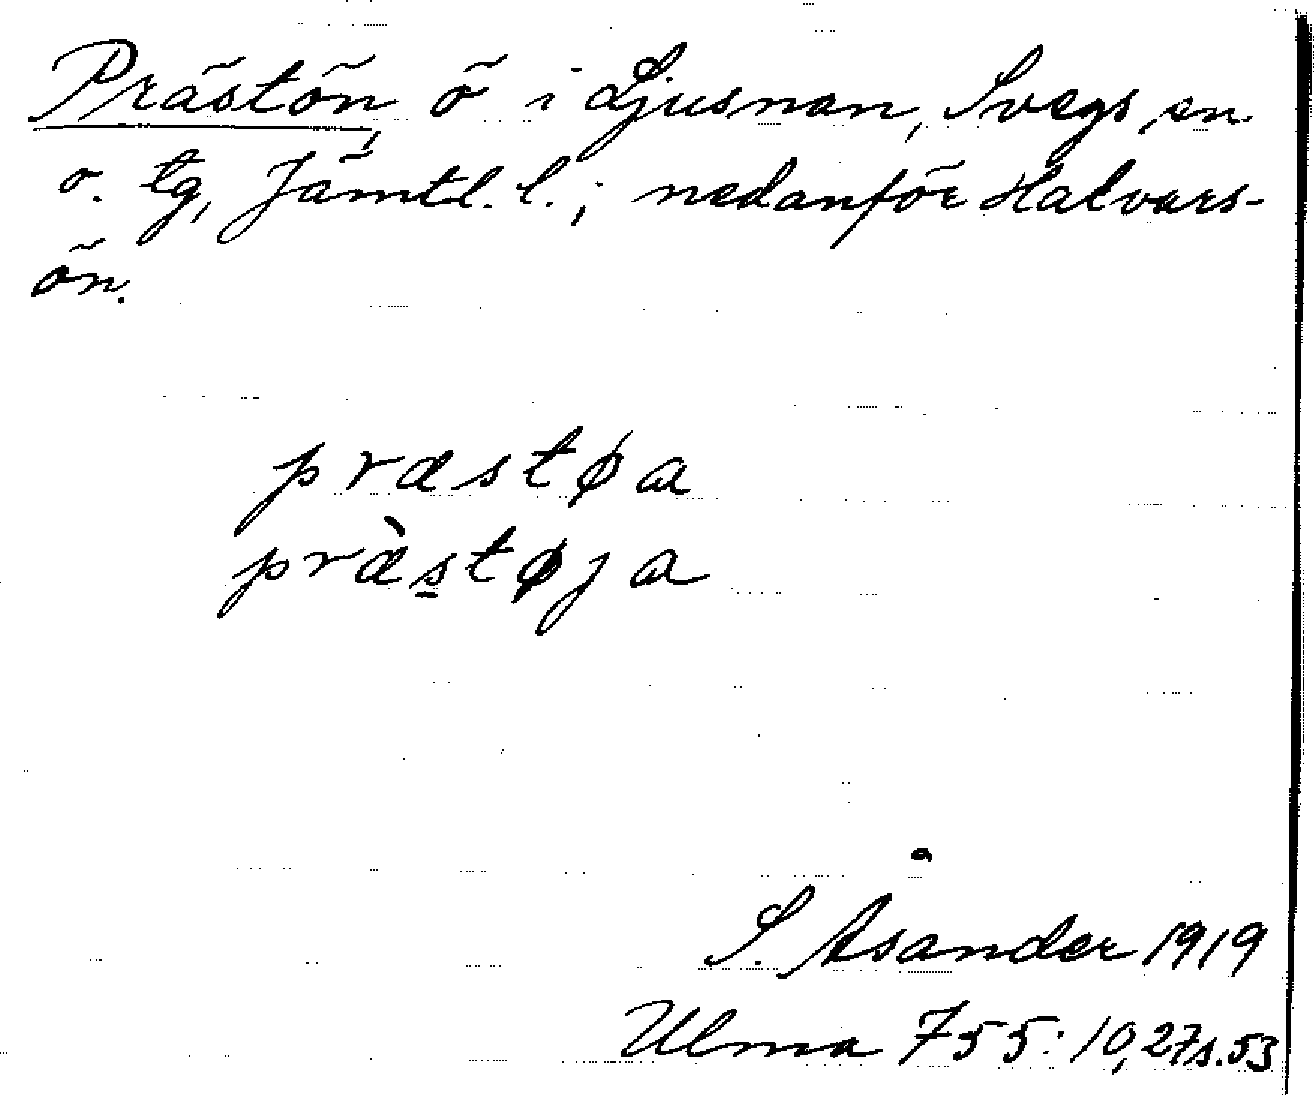 Prästön, ö i Ljusnan, Svegs sn
o. tg, Jämtl. l.; nedanför Halvars-
ön.
præstøa
præ̀s̠tøja
S. Åsander 1919
Ulma 755: 10,27 s. 53